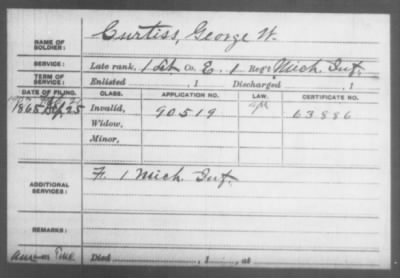 NAME OF SOLDIER: Curtiss, George W.
SERVICE: Late rank, 1 Lt Co. E, 1 Reg't Mich. Inf.
TERM OF SERVICE: Enlisted , 1 Discharged , 1
DATE OF FILING. CLASS. APPLICATION NO. LAW. CERTIFICATE NO.
1865 Sep 25 Invalid, 90519 63886
Widow,
Minor,
ADDITIONAL SERVICES: F. 1 Mich. Inf.
REMARKS:
Died , 1 , at